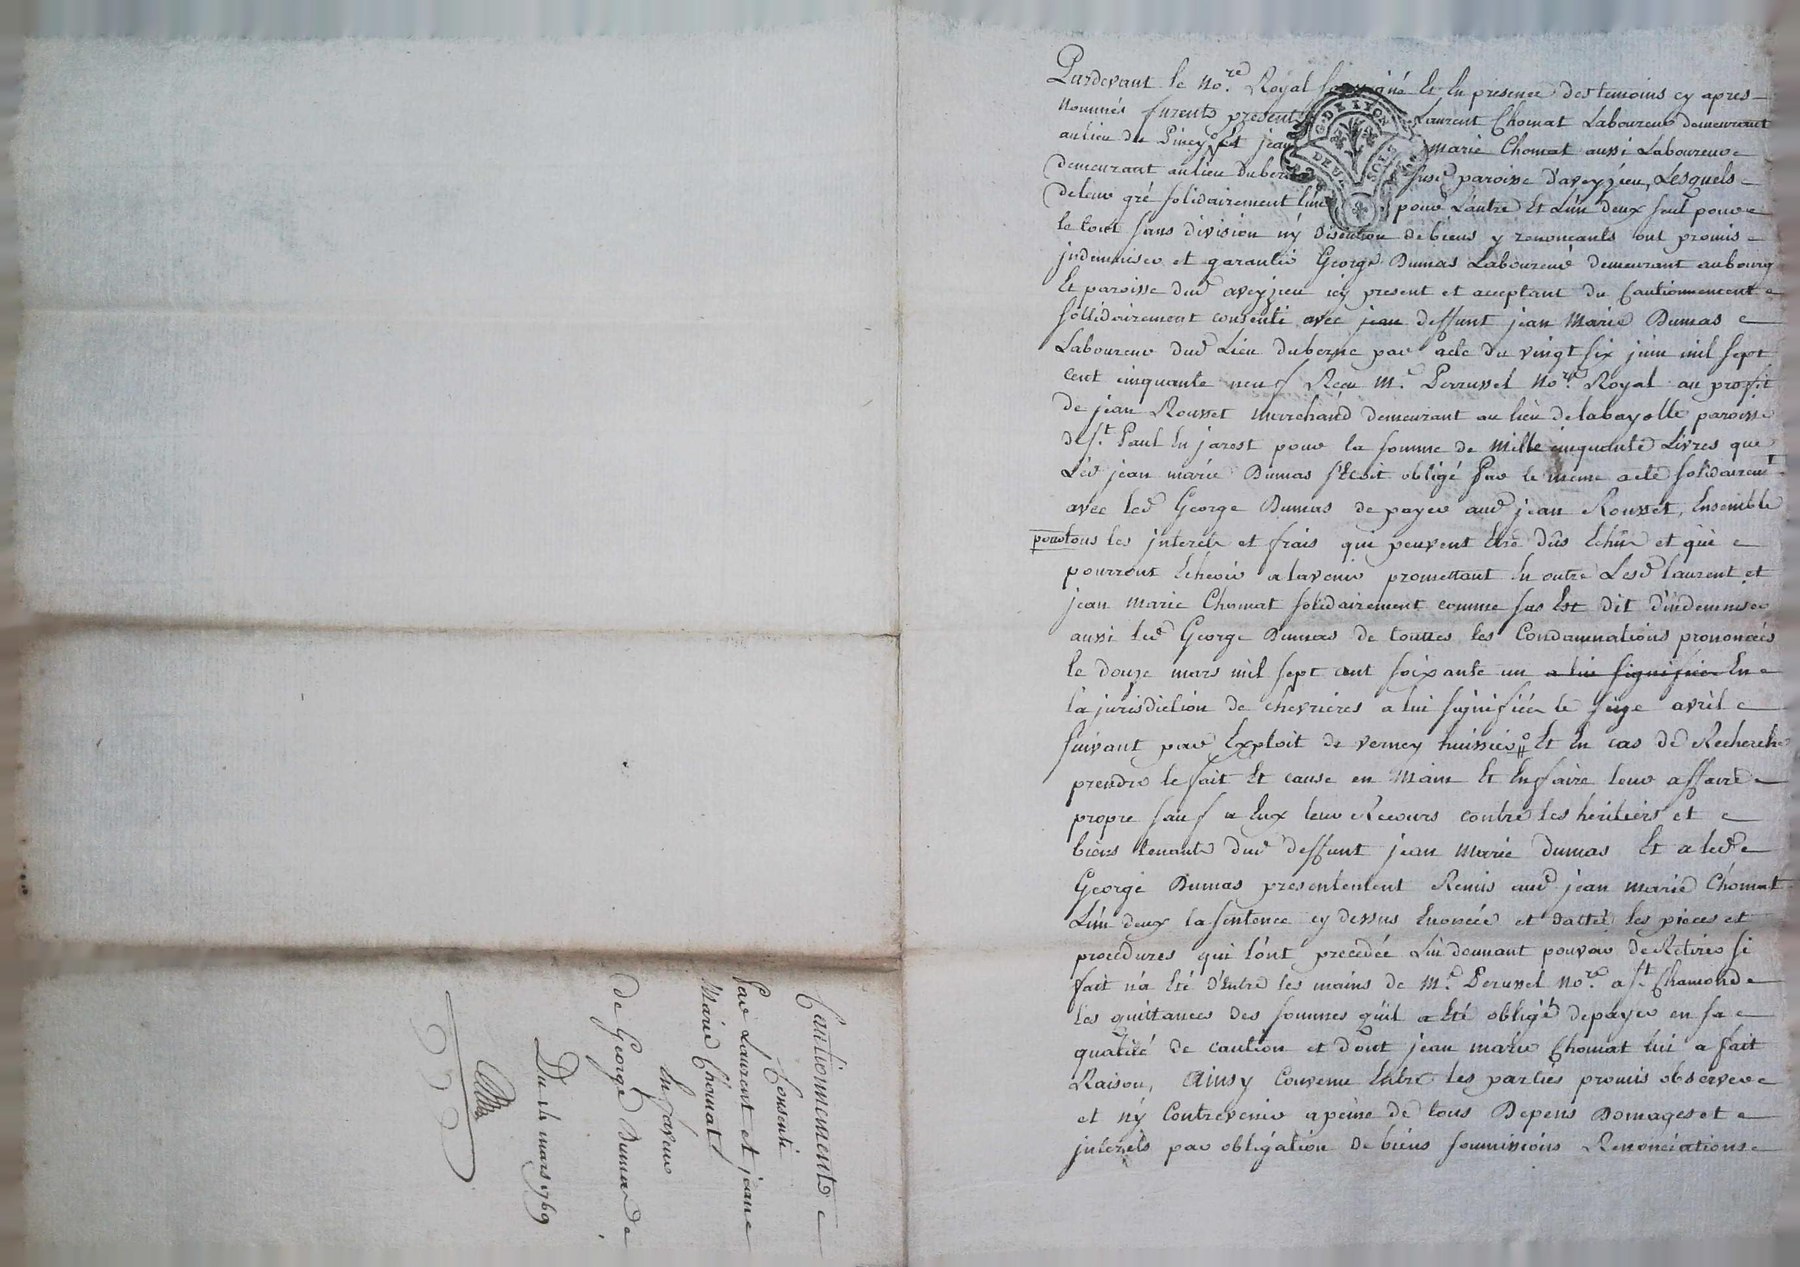 Pardevant le No.re Royal soussigné Et En presence des temoins cy apres
nommés furents presents Laurent Chomat Laboureur demeurant
au lieu du Piney Et jean marie Chomat aussi Laboureur
demeurant au lieu du berne susd paroisse d'aveyzieu, Lesquels
de leur gré solidairement l'un pour Lautre Et L'un deux seul pour
le tout sans division ny discution de biens y renonçants ont promis
indemniser et garantir George Dumas Laboureur demeurant au bourg
Et paroisse dud aveyzieu icy present et acceptant du Cautionnement
sollidairement consenti avec jean deffunt jean Marie Dumas
Laboureur dud Lieu duberne par acte du vingt six juin mil sept
cent cinquante neuf Recu M.e Perrussel No.re Royal au profit
de jean Rousset marchand demeurant au lieu de labayolle paroisse
de S.t Paul En jarest pour la somme de Mille cinquante Livres que
Led jean marie Dumas s'Etoit obligé Par le meme acte solidairem.t
avec led George Dumas de payer aud jean Rousset, Ensemble
pour tous les interets et frais qui peuvent Etre dûs Echûs et qui
pourront Echeoir a lavenir promettant En outre Lesd laurent et
jean marie Chomat solidairement comme sus Est dit d'indemniser
aussi led George Dumas de touttes les Condamnations prononcées
le douze mars mil sept cent soixante un a lui signifiées En
la jurisdiction de chevrieres a lui signifiées le seize avril
suivant par Exploit de verney huissier Et En cas de Recherche
prendre le fait Et cause en Main Et En faire leur affaire
propre sauf a Eux leur Recours contre les heritiers et
biens tenants dud deffunt jean Marie dumas Et a led
George Dumas presentement Remis aud jean marie Chomat
L'un deux la sentence cy dessus Enoncée et dattée les pieces et
procedures qui l'ont precedée Lui donnant pouvoir de Retirer si
fait n'a Eté d'Entre les mains de M.e Perussel No.re a S.t Chamond
les quittances des sommes qu'il a Eté obligé de payer en sa
qualité de caution et dont jean marie Chomat lui a fait
Raison, Ainsy Convenu Entre les parties promis observer
et n'y Contrevenir a peine de tous Depens Domages et
interets par obligation de biens soumissions Renonciations
Cautionnement
Consenti
Par Laurent et jean
Marie Chomat
En faveur
de George Dumas de
Du 14 mars 1769